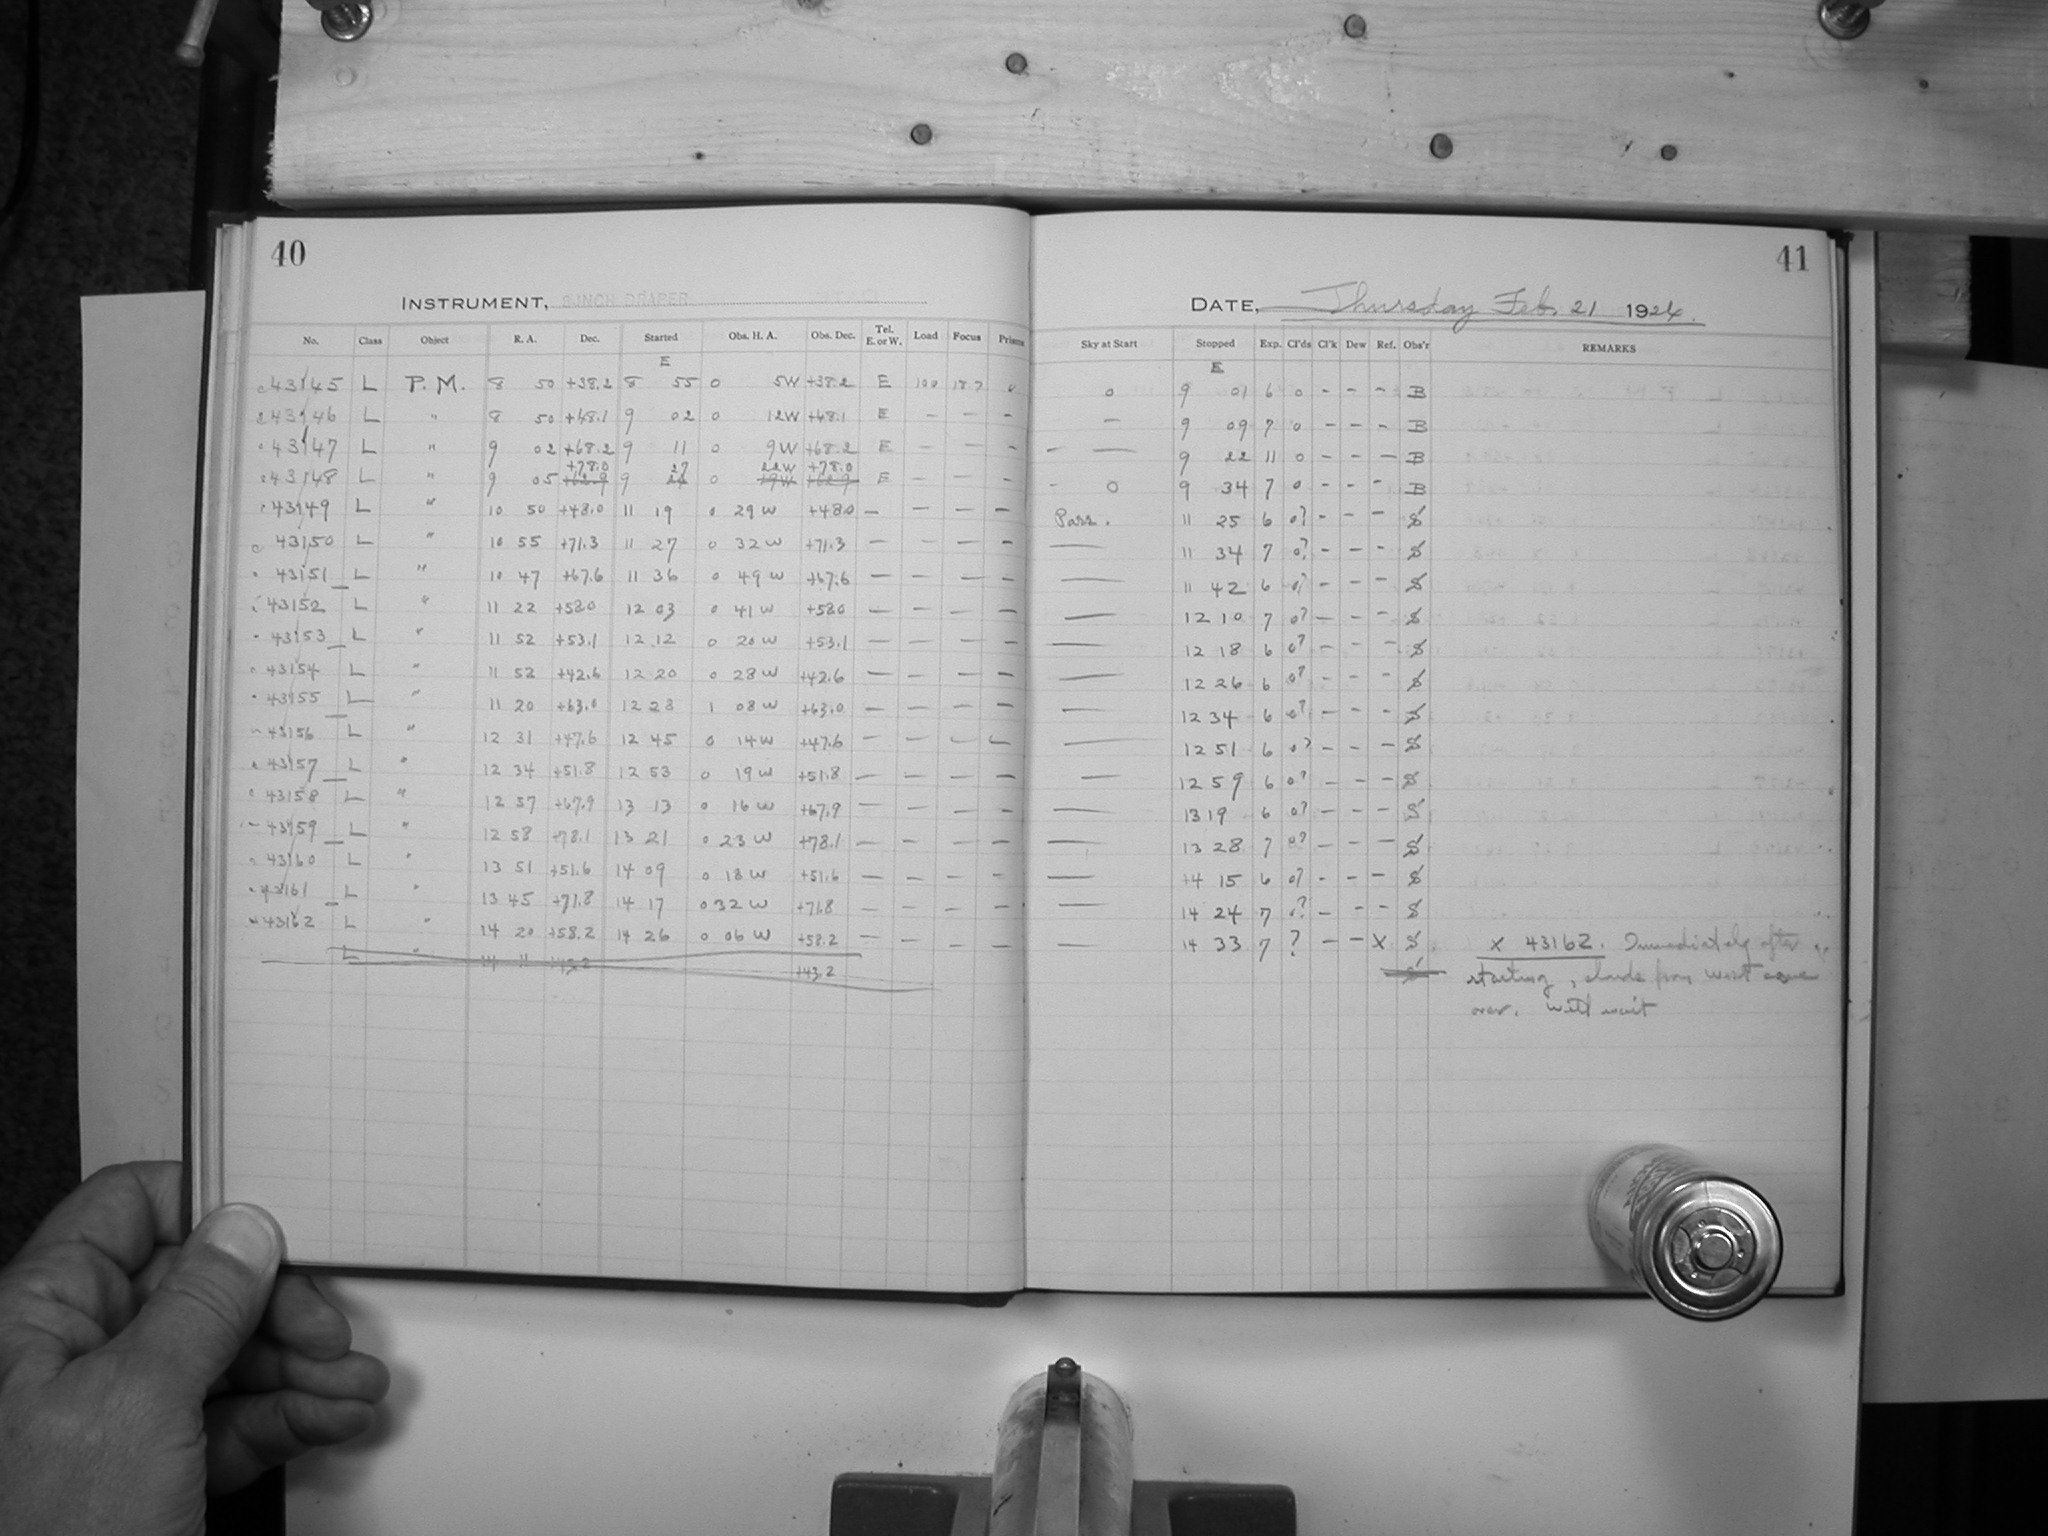 40
INSTRUMENT, 8 INCH DRAPER
No. Class Object R. A. Dec. Started Obs. H. A. Obs. Dec. Tel. E. or W. Load Focus Prisms
E
43145 L P. M. 8 50 +38.2 8 55 0 5W +38.2 E 100 18.7 0
43146 L " 8 50 +48.1 9 02 0 12W +48.1 E — — —
43147 L " 9 02 +68.2 9 11 0 9W +68.2 E — — —
+78.0 27 22W +78.0
43148 L " 9 05 +62.9 9 24 0 19W +62.9 E — — —
43149 L " 10 50 +48.0 11 19 0 29 W +48.0 — — — —
43150 L " 10 55 +71.3 11 27 0 32 W +71.3 — — — —
43151 L " 10 47 +67.6 11 36 0 49 W +67.6 — — — —
43152 L " 11 22 +58.0 12 03 0 41 W +58.0 — — — —
43153 L " 11 52 +53.1 12 12 0 20 W +53.1 — — — —
43154 L " 11 52 +42.6 12 20 0 28 W +42.6 — — — —
43155 L " 11 20 +63.0 12 28 1 08 W +63.0 — — — —
43156 L " 12 31 +47.6 12 45 0 14 W +47.6 — — — —
43157 L " 12 34 +51.8 12 53 0 19 W +51.8 — — — —
43158 L " 12 57 +67.9 13 13 0 16 W +67.9 — — — —
43159 L " 12 58 +78.1 13 21 0 23 W +78.1 — — — —
43160 L " 13 51 +51.6 14 09 0 18 W +51.6 — — — —
43161 L " 13 45 +71.8 14 17 0 32 W +71.8 — — — —
43162 L " 14 20 +58.2 14 26 0 06 W +58.2 — — — —
L " 14 11 +43.2 +43.2
41
DATE, Thursday Feb. 21 1924.
Sky at Start Stopped Exp. Cl'ds Cl'k Dew Ref. Obs'r REMARKS
E
0 9 01 6 0 - - - B
— 9 09 7 0 - - - B
— 9 22 11 0 - - - B
0 9 34 7 0 - - - B
Pass. 11 25 6 0? - - - S
— 11 34 7 0? - - - S
— 11 42 6 0? - - - S
— 12 10 7 0? - - - S
— 12 18 6 0? - - - S
— 12 26 6 0? - - - S
— 12 34 6 0? - - - S
— 12 51 6 0? - - - S
— 12 59 6 0? - - - S
— 13 19 6 0? - - - S
— 13 28 7 0? - - - S
— 14 15 6 0? - - - S
— 14 24 7 0? - - - S
— 14 33 7 ? - - X S X 43162. Immediately after
S starting, clouds from west came
over. Will wait